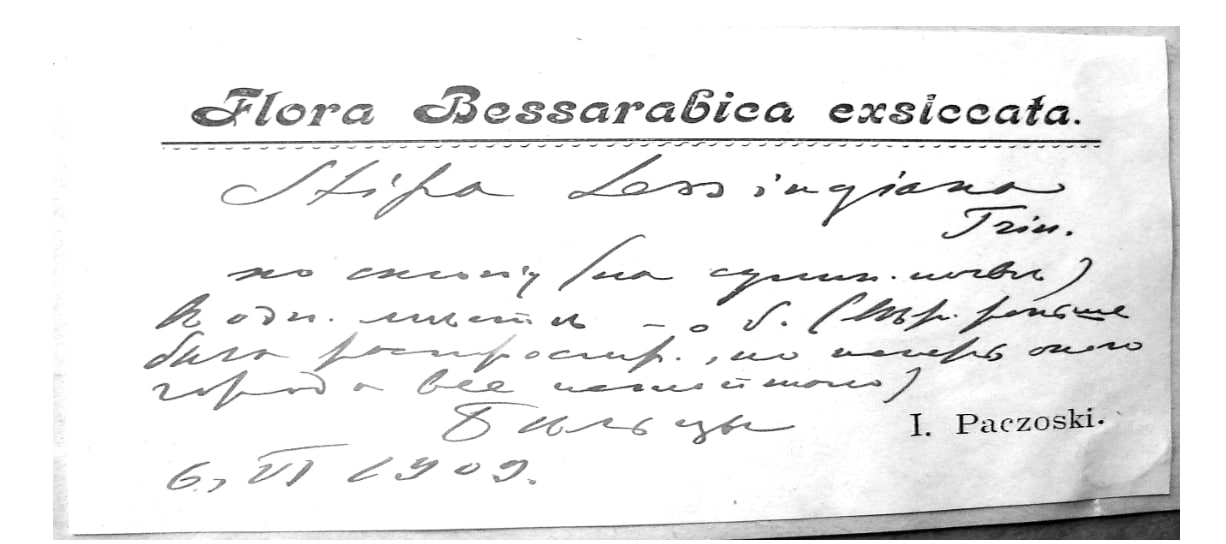 Flora Bessarabica exsiccata.
Stipa Lessingiana
Trin.
по склону (на сулин. почвѣ)
В одн. мѣстѣ - о б. (Вѣр. раньше
была распростр., но теперь около
города все
Бѣльцы
I. Paczoski.
6, VI 1909.